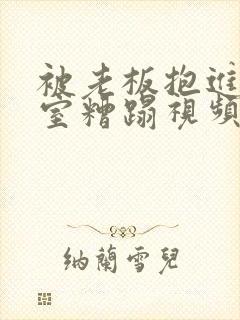 被老板抱进
室糟蹋視頻
纳蘭雪兒